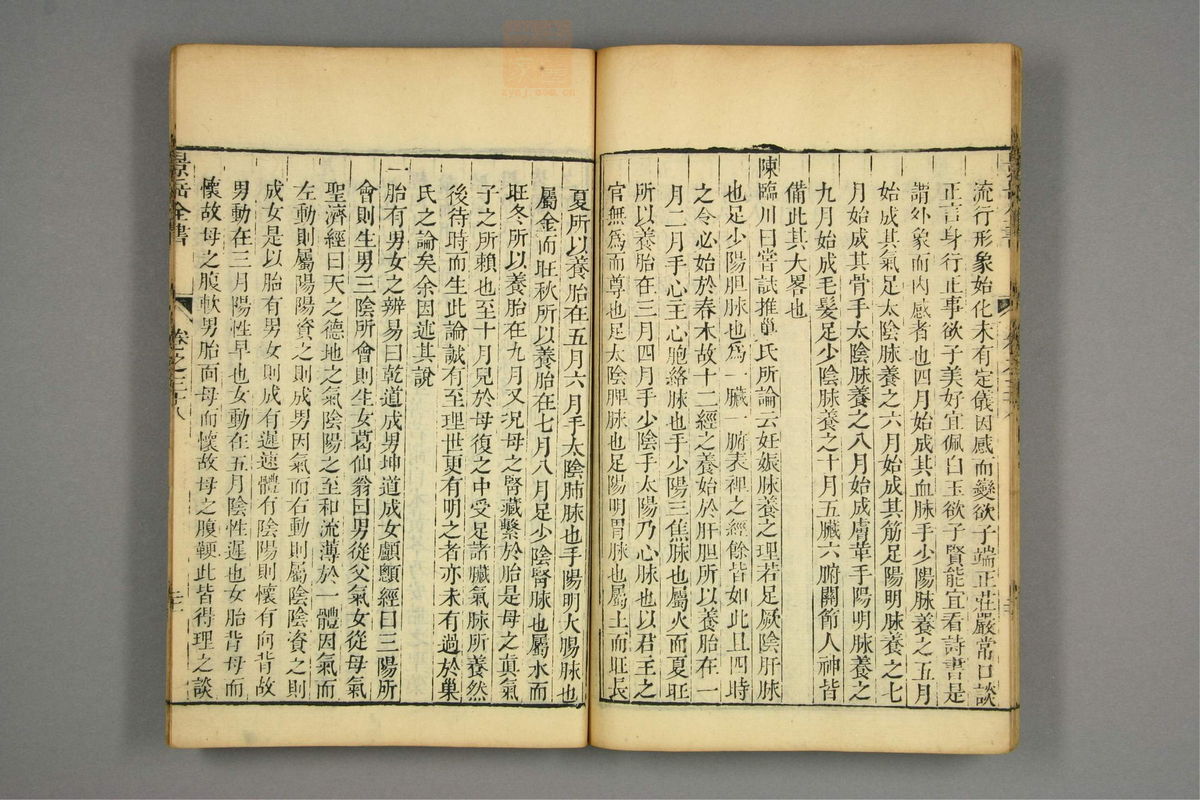 流行形象始化未有定儀因感而變欲子端正莊嚴常口談
正言身行正事欲子美好宜佩白玉欲子賢能宜看詩書是
謂外象而內感者也四月始成其血脉手少陽脉養之五月
始成其氣足太陰脉養之六月始成其筋足陽明脉養之七
月始成其骨手太陰脉養之八月始成膚革手陽明脉養之
九月始成毛髮足少陰脉養之十月五臟六腑關節人神皆
備此其大畧也
陳臨川曰嘗試推巢氏所論云妊娠脉養之理若足厥陰肝脉
也足少陽胆脉也爲一臟一腑表裡之經餘皆如此且四時
之令必始於春木故十二經之養始於肝胆所以養胎在一
月二月手心主心胞絡脉也手少陽三焦脉也屬火而夏旺
所以養胎在三月四月手少陰手太陽乃心脉也以君主之
官無爲而尊也足太陰脾脉也足陽明胃脉也屬土而旺長
夏所以養胎在五月六月手太陰肺脉也手陽明大腸脉也
屬金而旺秋所以養胎在七月八月足少陰腎脉也屬水而
旺冬所以養胎在九月又况母之腎藏繫於胎是母之真氣
子之所賴也至十月兒於母復之中受足諸臟氣脉所養然
後待時而生此論誠有至理世更有明之者亦未有過於巢
氏之論矣余因述其說
一胎有男女之辨易曰乾道成男坤道成女顱顖經曰三陽所
會則生男三陰所會則生女葛仙翁曰男從父氣女從母氣
聖濟經曰天之德地之氣陰陽之至和流薄於一體因氣而
左動則屬陽陽資之則成男因氣而右動則屬陰陰資之則
成女是以胎有男女則成有遲速體有陰陽則懷有向背故
男動在三月陽性早也女動在五月陰性遲也女胎背母而
懷故母之腹軟男胎面母而懷故母之腹鞕此皆得理之談
景岳全書
卷之三十八